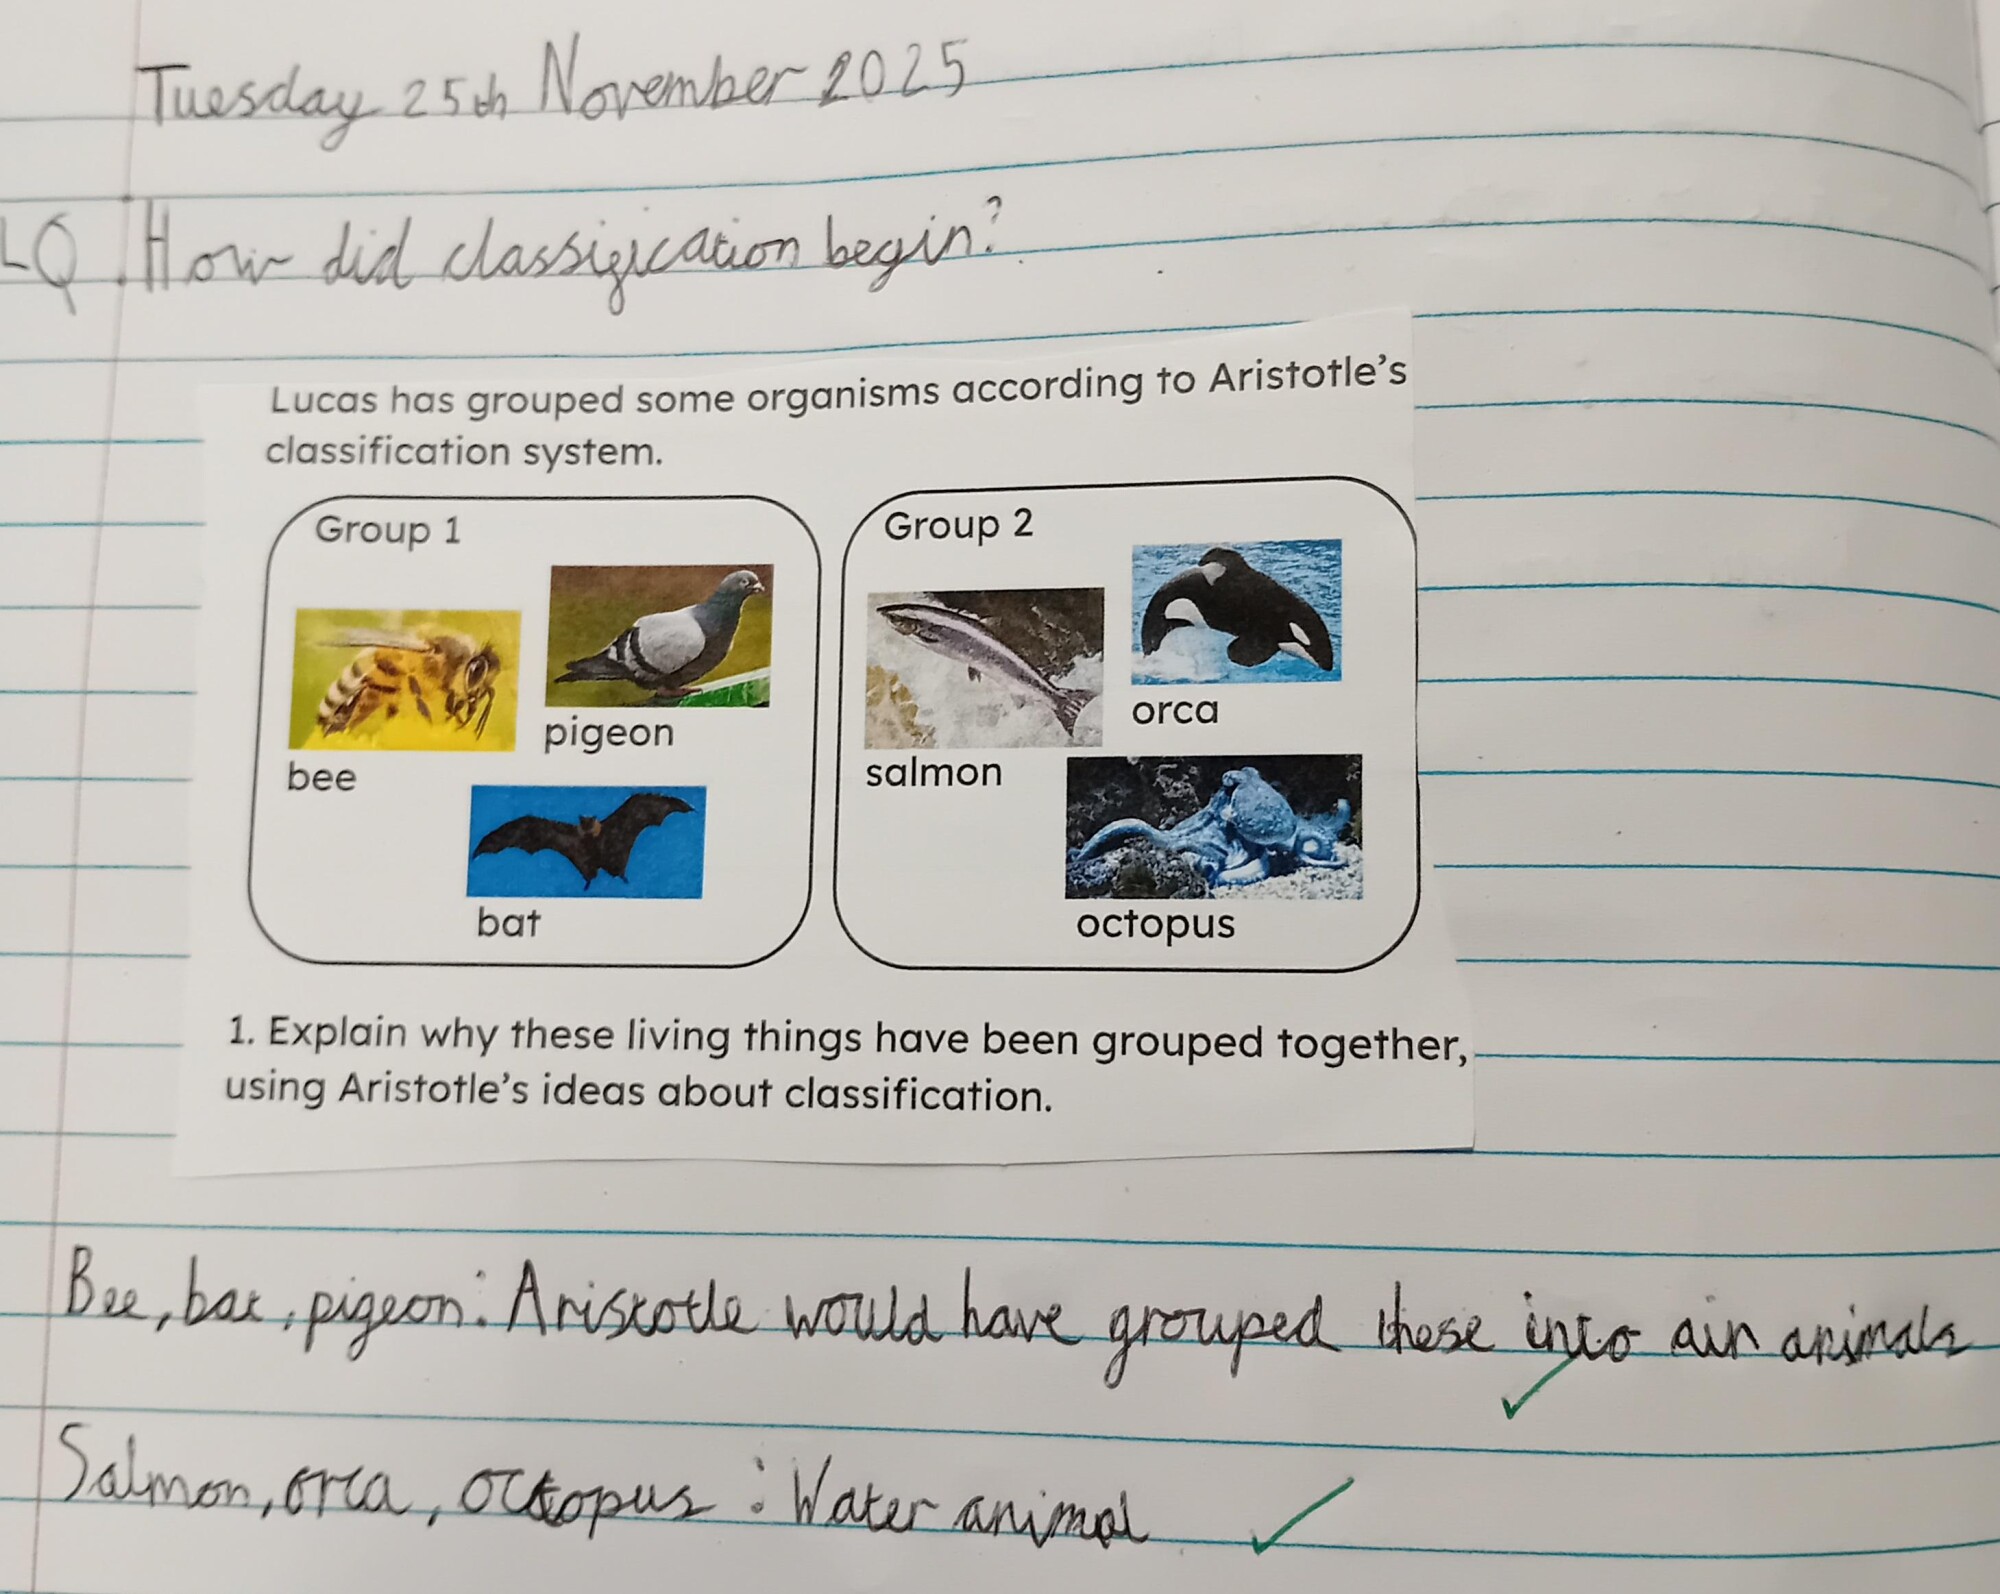 Tuesday 25th November 2025
LQ. How did classification begin?
Lucas has grouped some organisms according to Aristotle's
classification system.
Group 1
bee
pigeon
bat
Group 2
salmon
orca
octopus
1. Explain why these living things have been grouped together,
using Aristotle's ideas about classification.
Bee, bat, pigeon: Aristotle would have grouped these into air animals
Salmon, orca, octopus : Water animal